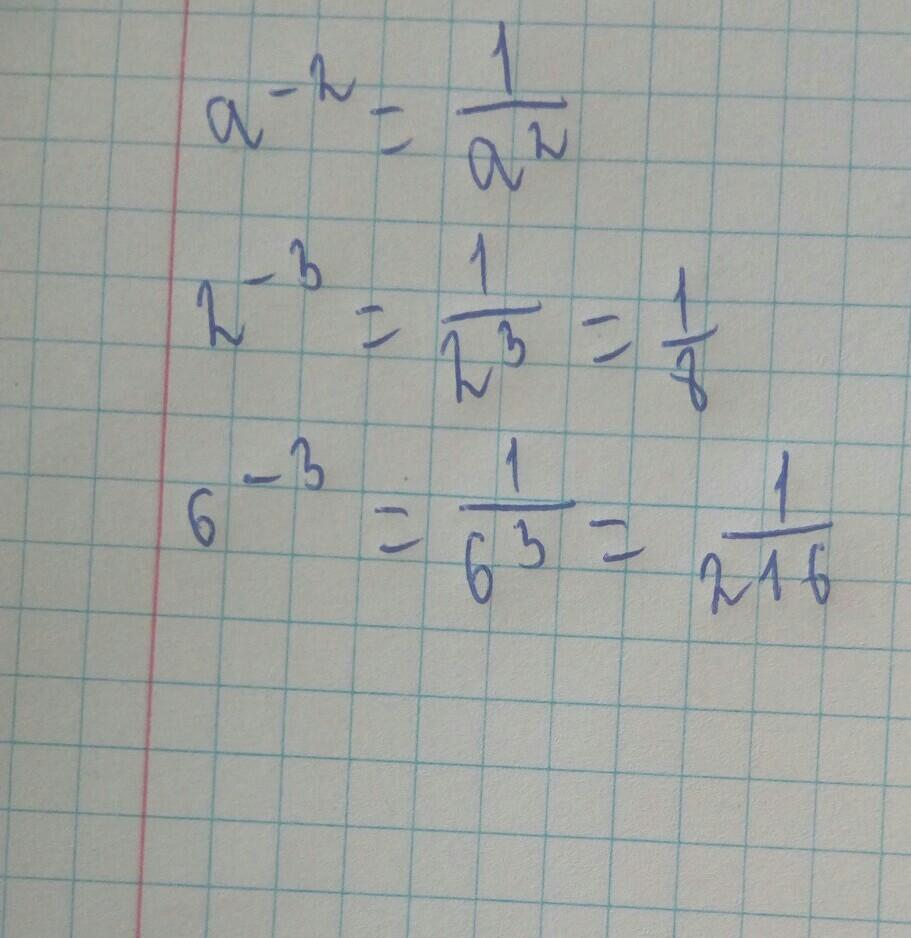 a⁻² = 1/a²
2⁻³ = 1/2³ = 1/8
6⁻³ = 1/6³ = 1/216